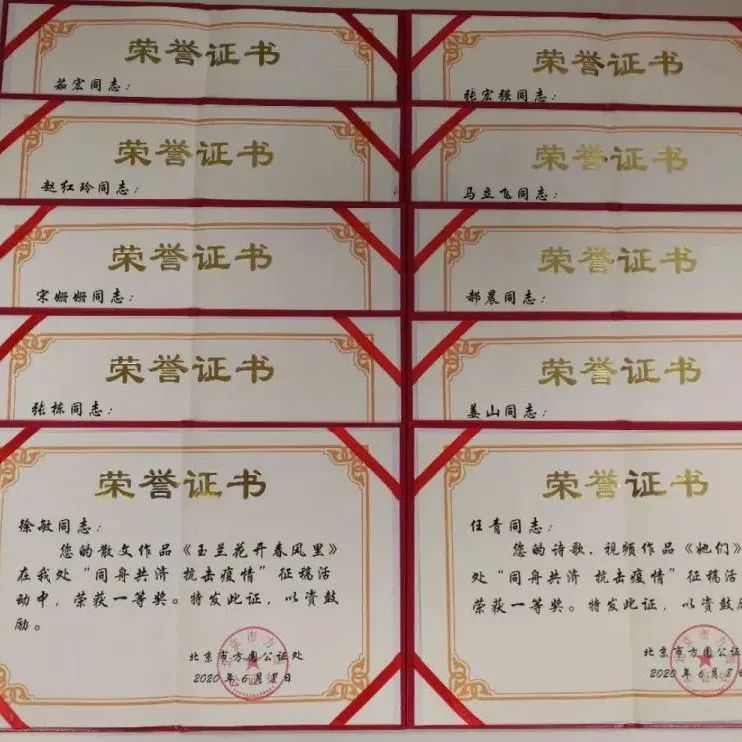 荣誉证书
茹宏同志：
荣誉证书
张宏强同志：
荣誉证书
赵红玲同志：
荣誉证书
马立飞同志：
荣誉证书
宋姗姗同志：
荣誉证书
郝晨同志：
荣誉证书
张栋同志：
荣誉证书
姜山同志：
荣誉证书
徐敏同志：
您的散文作品《玉兰花开春风里》
在我处“同舟共济 抗击疫情”征稿活
动中，荣获一等奖。特发此证，以资鼓
励。
北京市方圆公证处
2020年6月8日
荣誉证书
任青同志：
您的诗歌、视频作品《她们》
处“同舟共济 抗击疫情”征稿
荣获一等奖。特发此证，以资鼓
北京市方圆公证
2020年6月8日